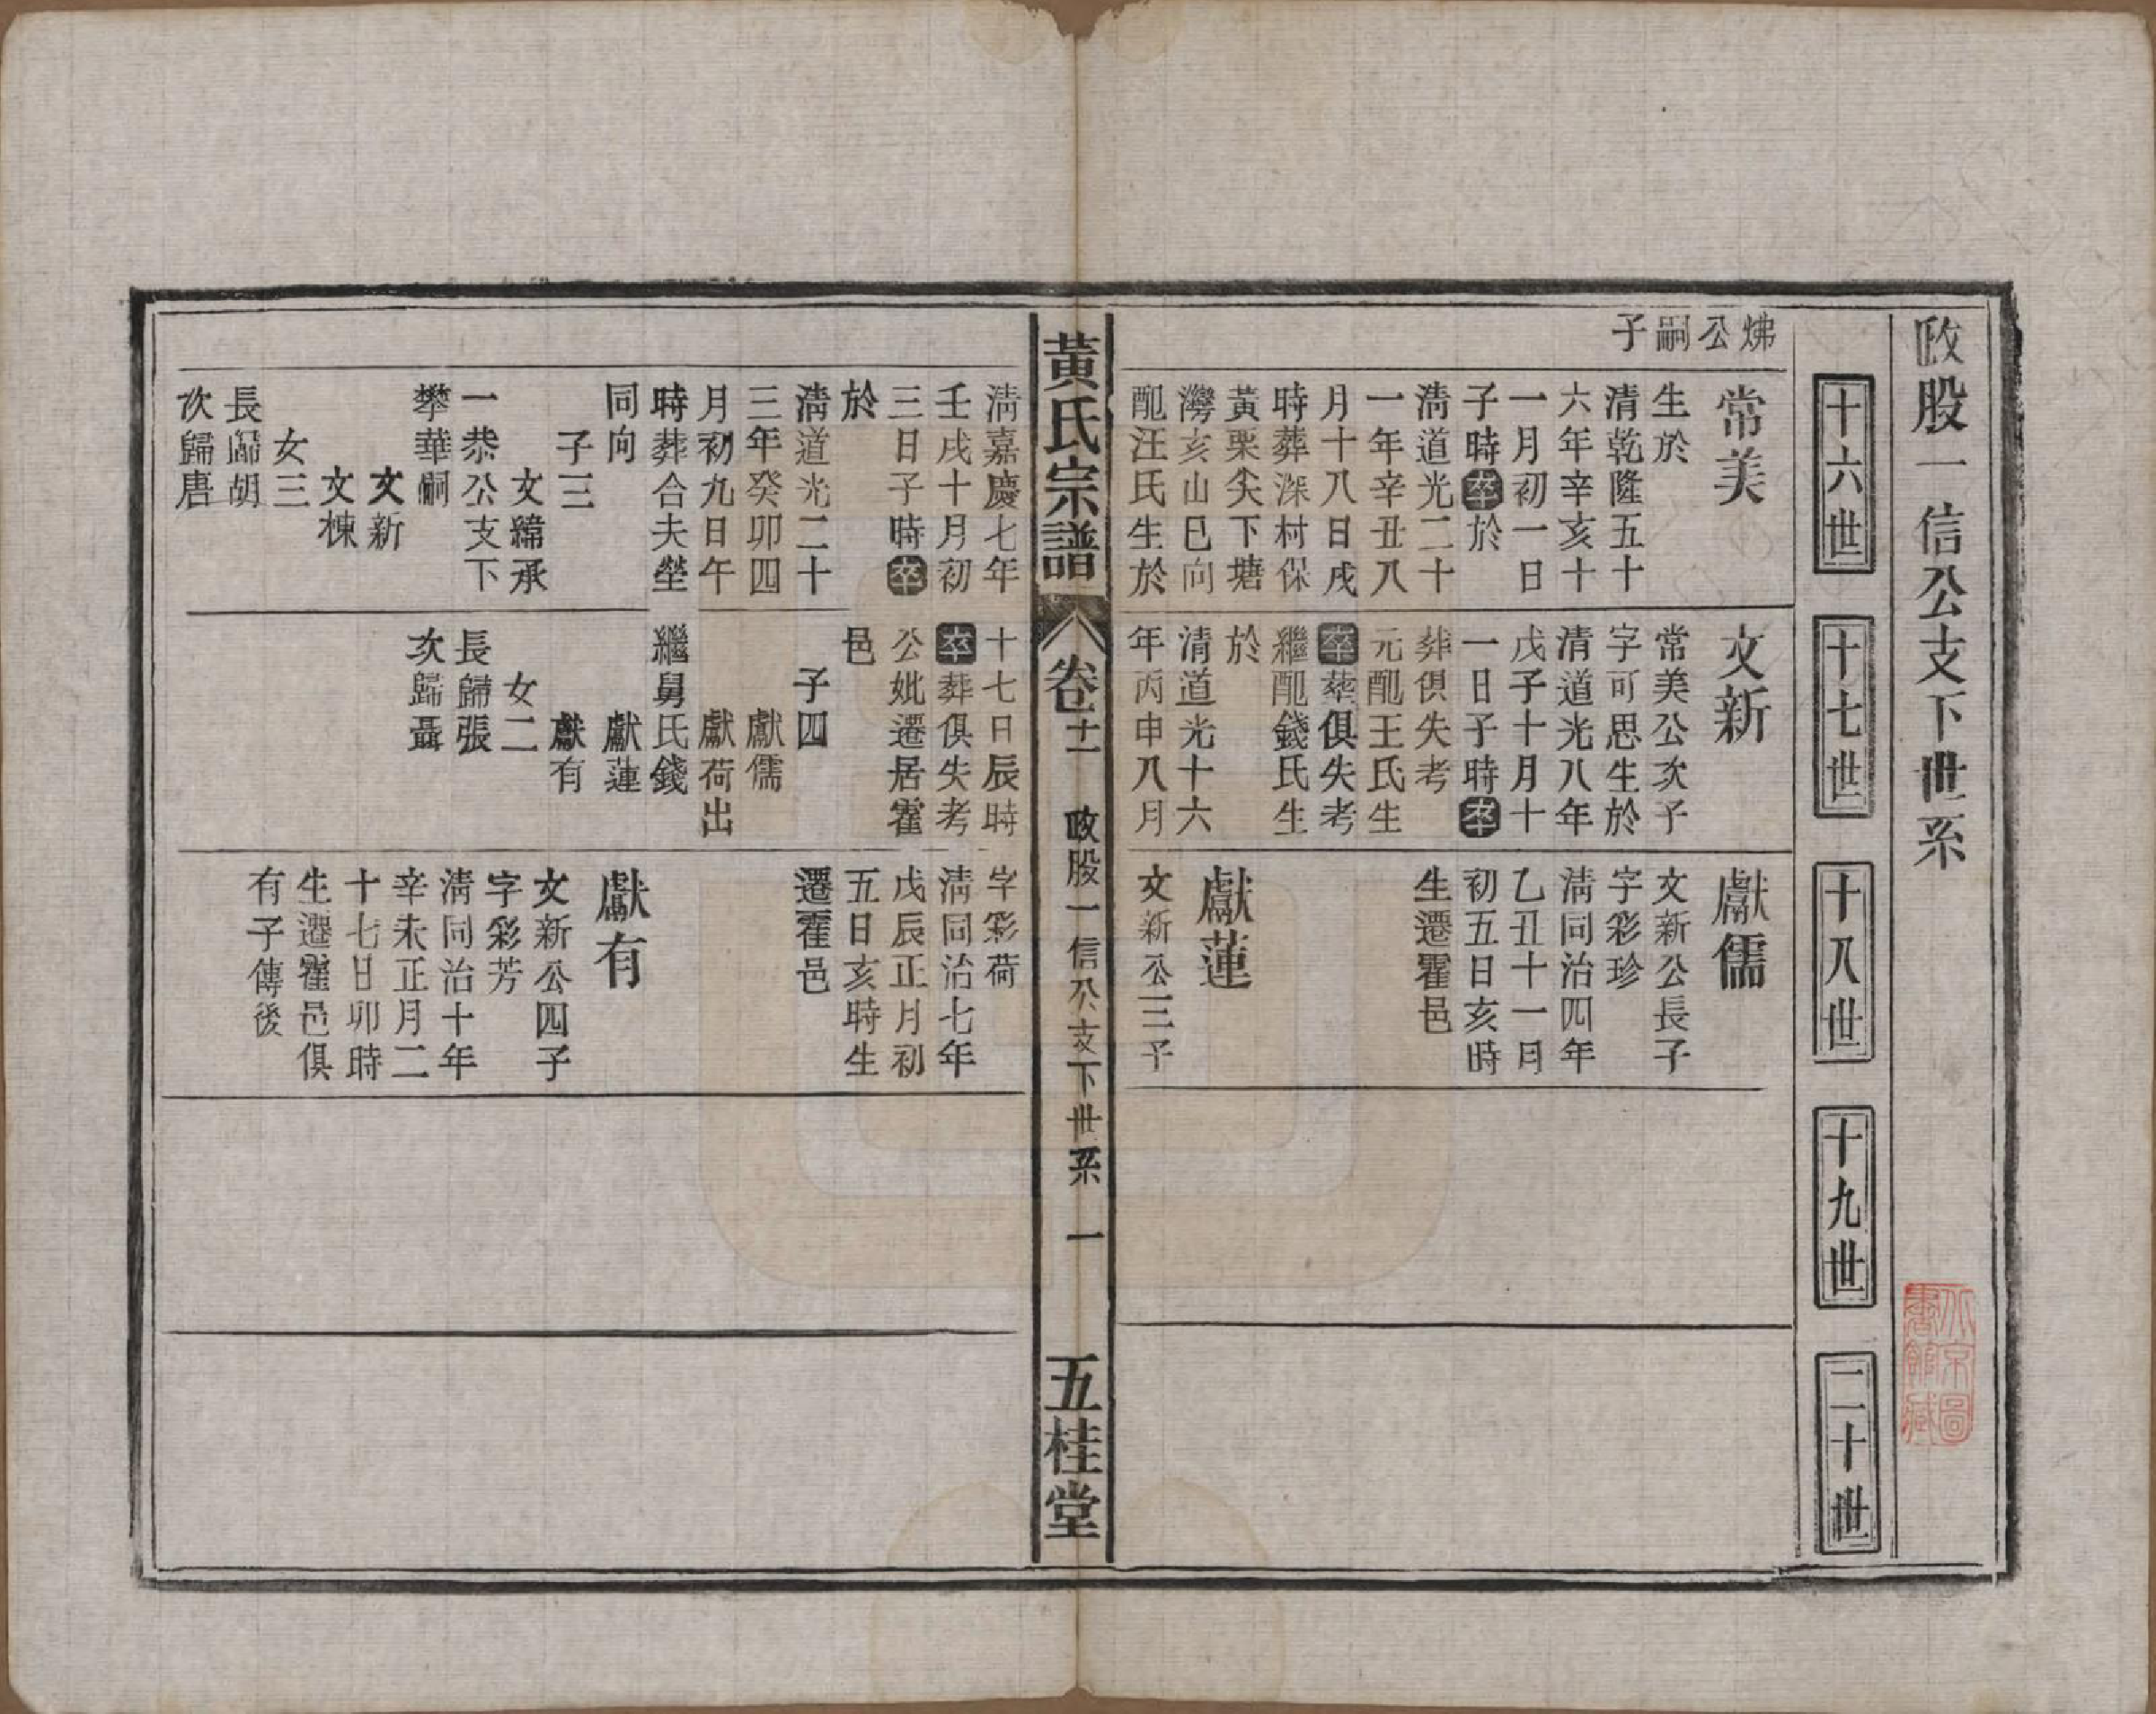 政股一信公支下世系
十六世
十七世
十八世
十九世
二十世
炥公嗣子
常美
生於
清乾隆五十
六年辛亥十
一月初一日
子時卒於
清道光二十
一年辛丑八
月十八日戌
時葬深村保
黃栗尖下塘
灣亥山巳向
配汪氏生於
文新
常美公次子
字可思生於
清道光八年
戊子十月十
一日子時卒
葬俱失考
元配王氏生
卒葬俱失考
繼配錢氏生
於
清道光十六
年丙申八月
獻儒
文新公長子
字彩珍
清同治四年
乙丑十一月
初五日亥時
生遷霍邑
獻蓮
文新公三子
黃氏宗譜
卷十二
政股一信公支下世系
一
五桂堂
清嘉慶七年
壬戌十月初
三日子時卒
於
清道光二十
三年癸卯四
月初九日午
時葬合夫塋
同向
子三
文緯承
一恭公支下
攀華嗣
文新
文棟
女三
長歸胡
次歸唐
十七日辰時
卒葬俱失考
公妣遷居霍
邑
子四
獻儒
獻荷出
繼舅氏錢
獻蓮
獻有
女二
長歸張
次歸聶
字彩荷
清同治七年
戊辰正月初
五日亥時生
遷霍邑
獻有
文新公四子
字彩芳
清同治十年
辛未正月二
十七日卯時
生遷霍邑俱
有子傳後
北京圖
書館藏